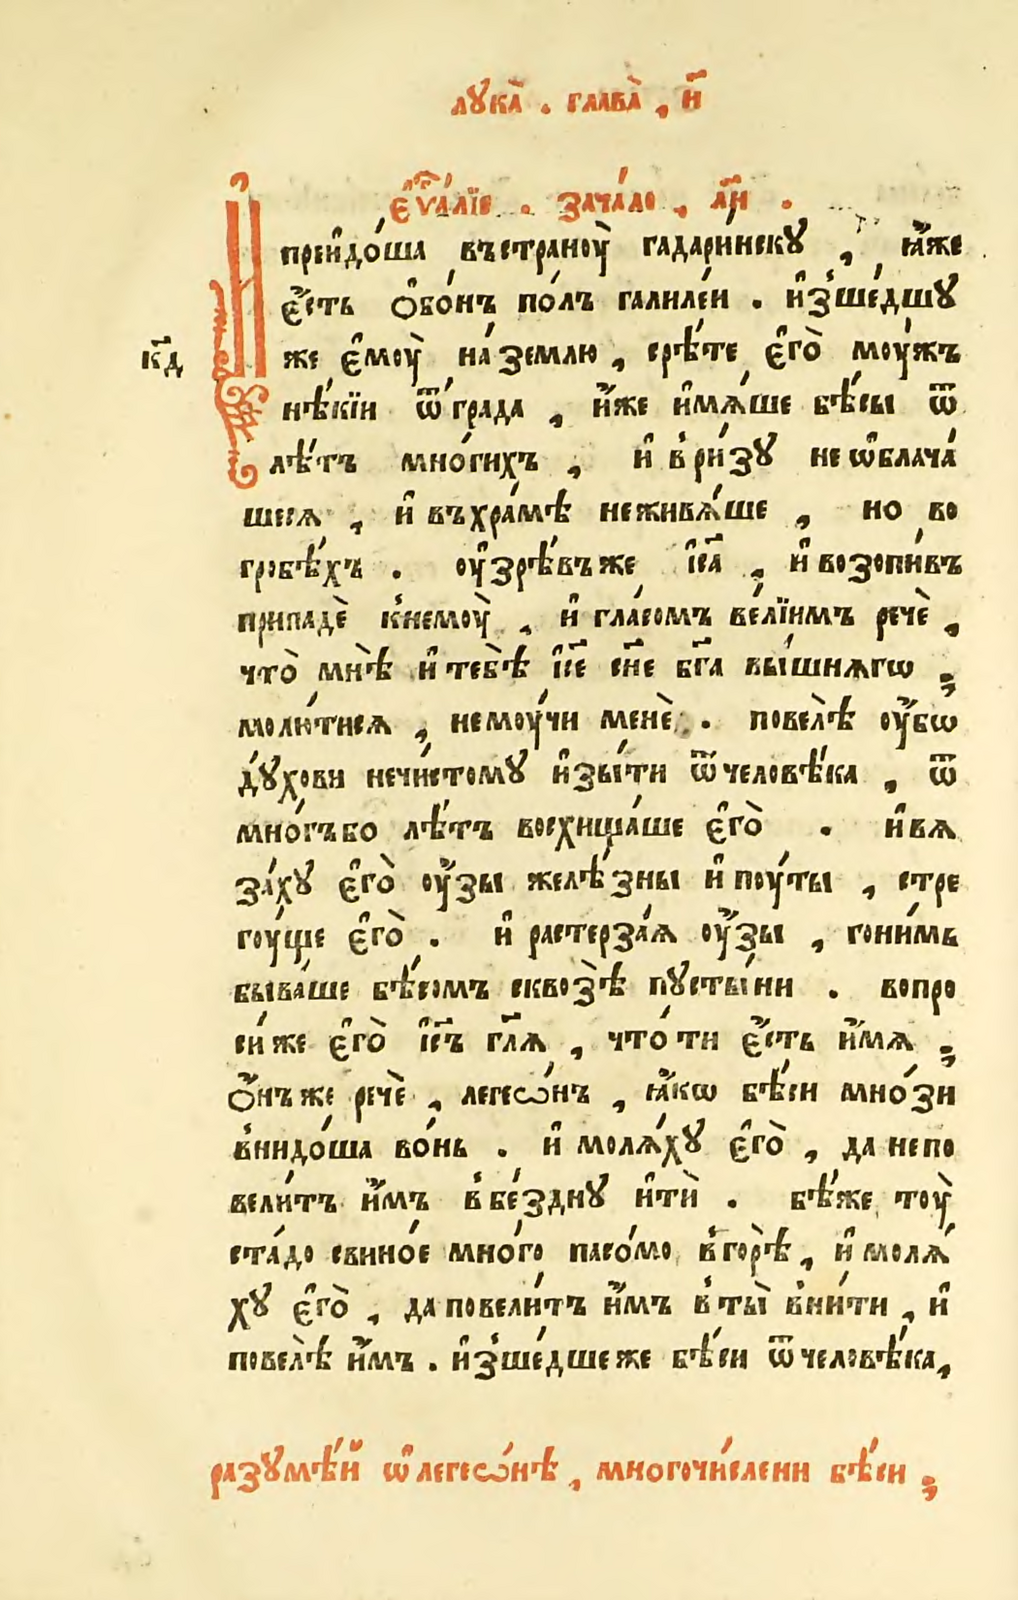 лꙋка̀ . глава̀ , и҃
є҆ѵⷢ҇а́лїе . зача́ло , л҃и .
И
прейдо́ша въстраноу̀ гадари́нскꙋ , ꙗ҆́же
є҆́сть ѻ҆бо́нъ по́лъ галиле́и . и҆зше́дшꙋ
же є҆моу̀ на́ землю , срѣ́те є҆го̀ моу́жъ
к҃д
нѣ́кїи ѿ гра́да , и҆́же и҆мѧ́ше бѣ́сы ѿ
лѣ́тъ мно́гихъ , и҆ в ри́зꙋ не ѡ҆блача́
шесѧ , и҆ въхра́мѣ неживѧ́ше , но во
гробѣ́хъ . оу҆зрѣ́въже і҆с҃а , и҆ возопи́въ
припадѐ кнемоу̀ , и҆ гла́сомъ ве́лїимъ речѐ ,
что̀ мнѣ̀ и҆ тебѣ̀ і҆с҃е с҃не бг҃а вы́шнѧгѡ ;
молю́тисѧ , немоу́чи менѐ . повелѣ̀ оу҆́бѡ
дꙋ́хови нечи́стомꙋ и҆зы́ти ѿ человѣ́ка , ѿ
мно́гъбо лѣ́тъ восхища́ше є҆го̀ . и҆ вѧ
за́хꙋ є҆го̀ оу҆́зы желѣ́зны и҆ поу́ты , стре
гоу́ще є҆го̀ . и҆ растерза́ѧ оу҆́зы , гони́мь
быва́ше бѣ́сомъ сквозѣ̀ пꙋсты́ни . вопро
си́ же є҆го̀ і҆с҃ъ гл҃ѧ , что́ ти є҆́сть и҆́мѧ ;
ѻ҆́нъ же речѐ , легеѡ́нъ , ꙗ҆́кѡ бѣ́си мно́зи
внидо́ша во́нь . и҆ молѧ́хꙋ є҆го̀ , да непо
вели́тъ и҆́мъ в бе́зднꙋ и҆тѝ . бѣ́же тоу̀
ста́до свино́е мно́го пасо́мо вгорѣ̀ , и҆ молѧ́
хꙋ є҆го̀ , да повели́тъ и҆́мъ в ты̀ вни́ти , и҆
повелѣ̀ и҆́мъ . и҆зше́дше же бѣ́си ѿ человѣ́ка ,
разꙋмѣ́й ѡ҆ легеѡ́нѣ , многочи́слени бѣ́си ;